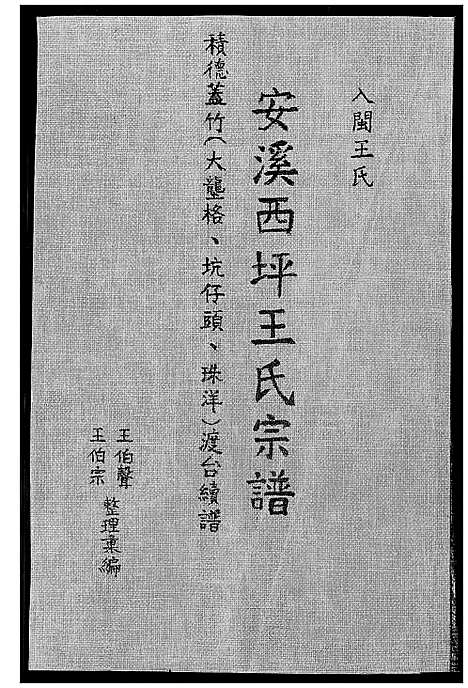 入閩王氏
安溪西坪王氏宗譜
積德蓋竹(大壟格、坑仔頭、珠洋)渡台續譜
王伯聲
王伯宗
整理彙編